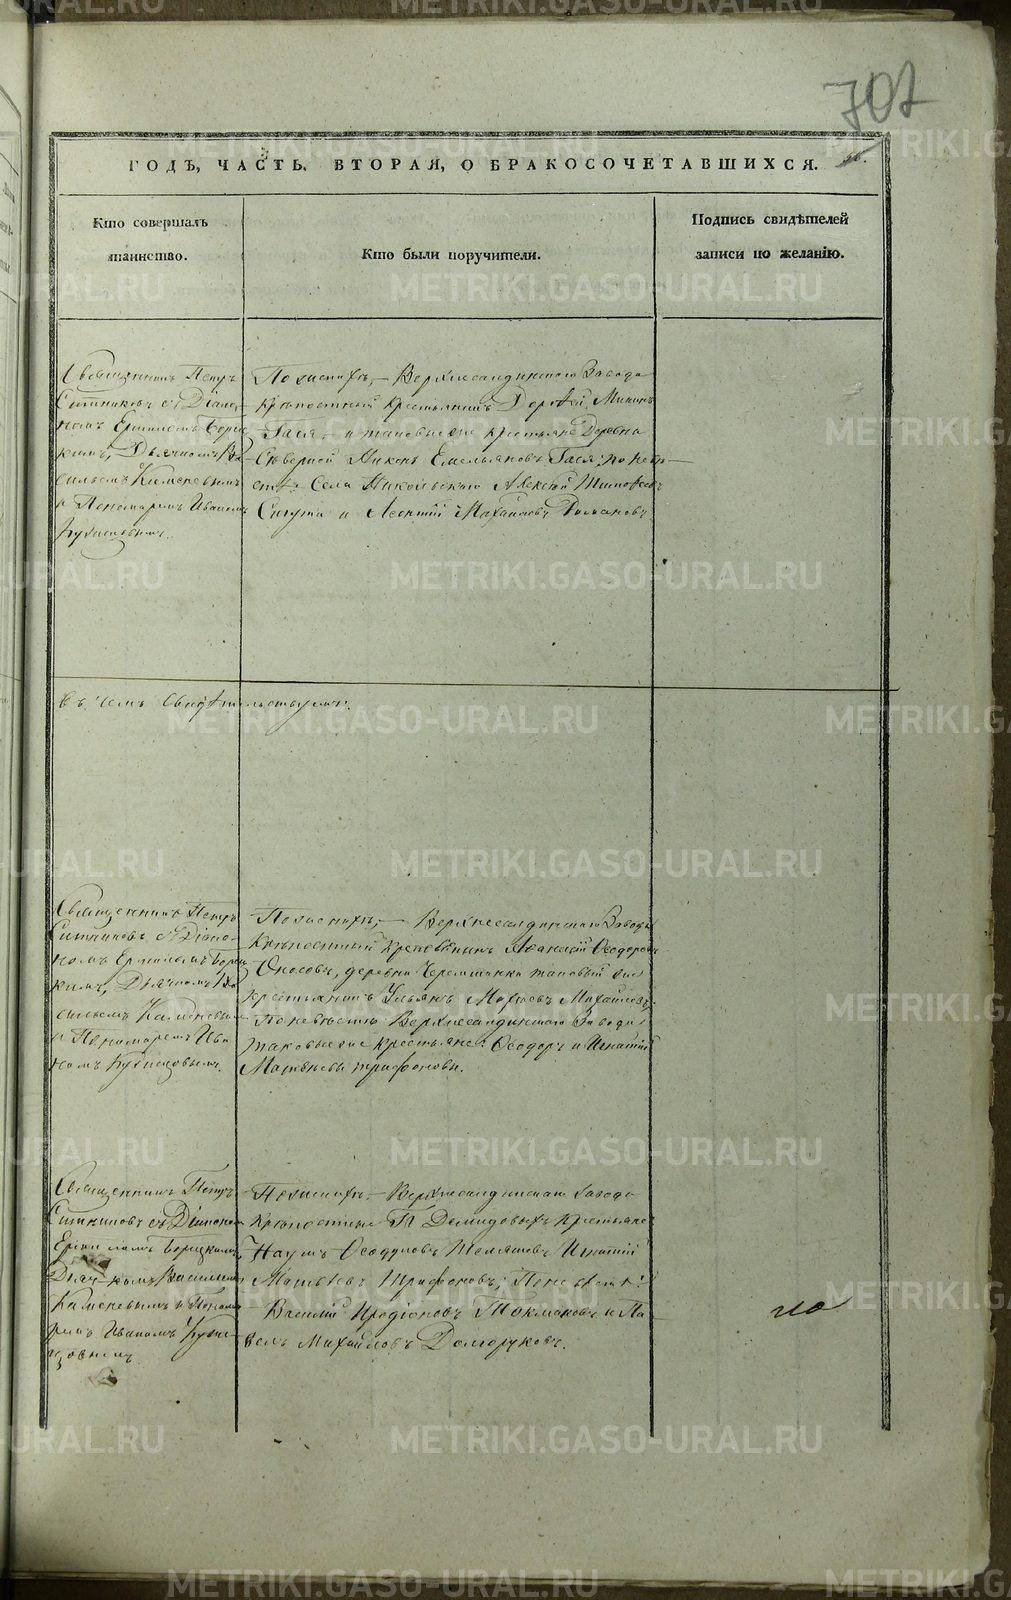 707
ГОДЪ, ЧАСТЬ ВТОРАЯ, О БРАКОСОЧЕТАВШИХСЯ.
Кто совершалъ
таинство.
Кто были поручители.
Подпись свидѣтелей
записи по желанію.
Священникъ Петръ
Ситниковъ съ Діако-
номъ
Дьячкомъ Ва-
сильемъ Каменевымъ
и Пономаремъ Иваномъ
По женихѣ, – Верхнесалдинскаго Завода
крѣпостный крестьянинъ Дорофей Мининъ
Гася, и таковые же крестьяне Деревни
Сѣверной Никонъ Емельяновъ Гася; по невѣ-
стѣ: Села Никольскаго Алексей Тимофеевъ
и Леонтій Михайловъ Романовъ
въ чемъ свидѣтельствуемъ.
Священникъ Петръ
Ситниковъ съ Діако-
номъ
Дьячкомъ Ва
сильемъ Каменевымъ
и Пономаремъ Ива
номъ
По женихѣ, – Верхнесалдинскаго Завода
Крѣпостный Крестьянинъ Афанасій Ѳеодоровъ
Оносовъ, деревни Черемшанки таковый же
крестьянинъ Ульянъ Михайловъ
По невѣстѣ Верхнесалдинскаго Завода
таковые же крестьяне: Ѳеодоръ и Игнатій
Матвѣевы Трифоновы.
Священникъ Петръ
Ситниковъ съ Діакономъ
Дьячкомъ Василіемъ
Каменевымъ и Понома
ремъ Иваномъ
По женихѣ – Верхнесалдинскаго Завода
Крѣпостные Г. Демидовыхъ крестьяне
Наумъ Ѳеодоровъ Игнатій
Матвѣевъ Трифоновъ; По невѣстѣ:
Василій Иродіоновъ Токмаковъ и Па-
велъ Михайловъ Долгоруковъ.
METRIKI.GASO-URAL.RU